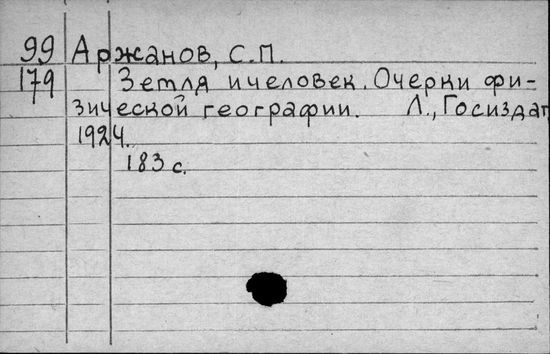 99 Аржанов, С.П.
179 Земля и человек. Очерки фи-
зической географии. Л., Госиздат,
1924.
183 с.